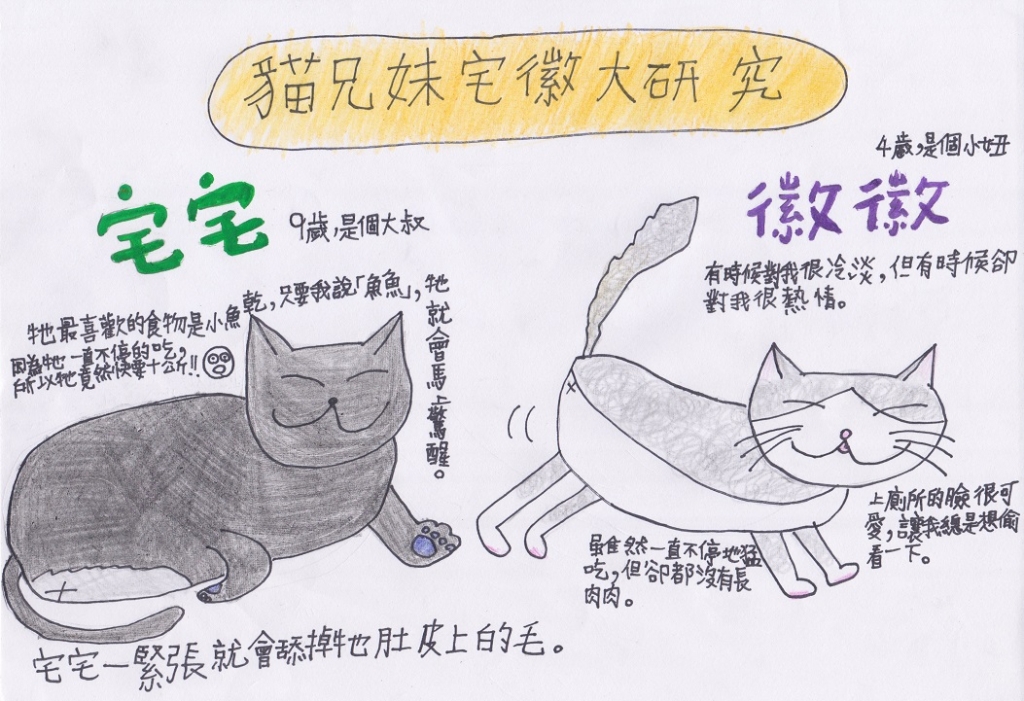 貓兄妹宅徽大研究
宅宅
9歲,是個大叔
牠最喜歡的食物是小魚乾,只要我說「魚魚」,牠就會馬上驚醒。
因為牠一直不停的吃,
所以牠竟然快要十公斤!!
宅宅一緊張就會舔掉牠肚皮上的毛。
4歲,是個小妞
徽徽
有時候對我很冷淡,但有時候卻
對我很熱情。
上廁所的臉很可
愛,讓我總是想偷
看一下。
雖然一直不停地猛
吃,但卻都沒有長
肉肉。